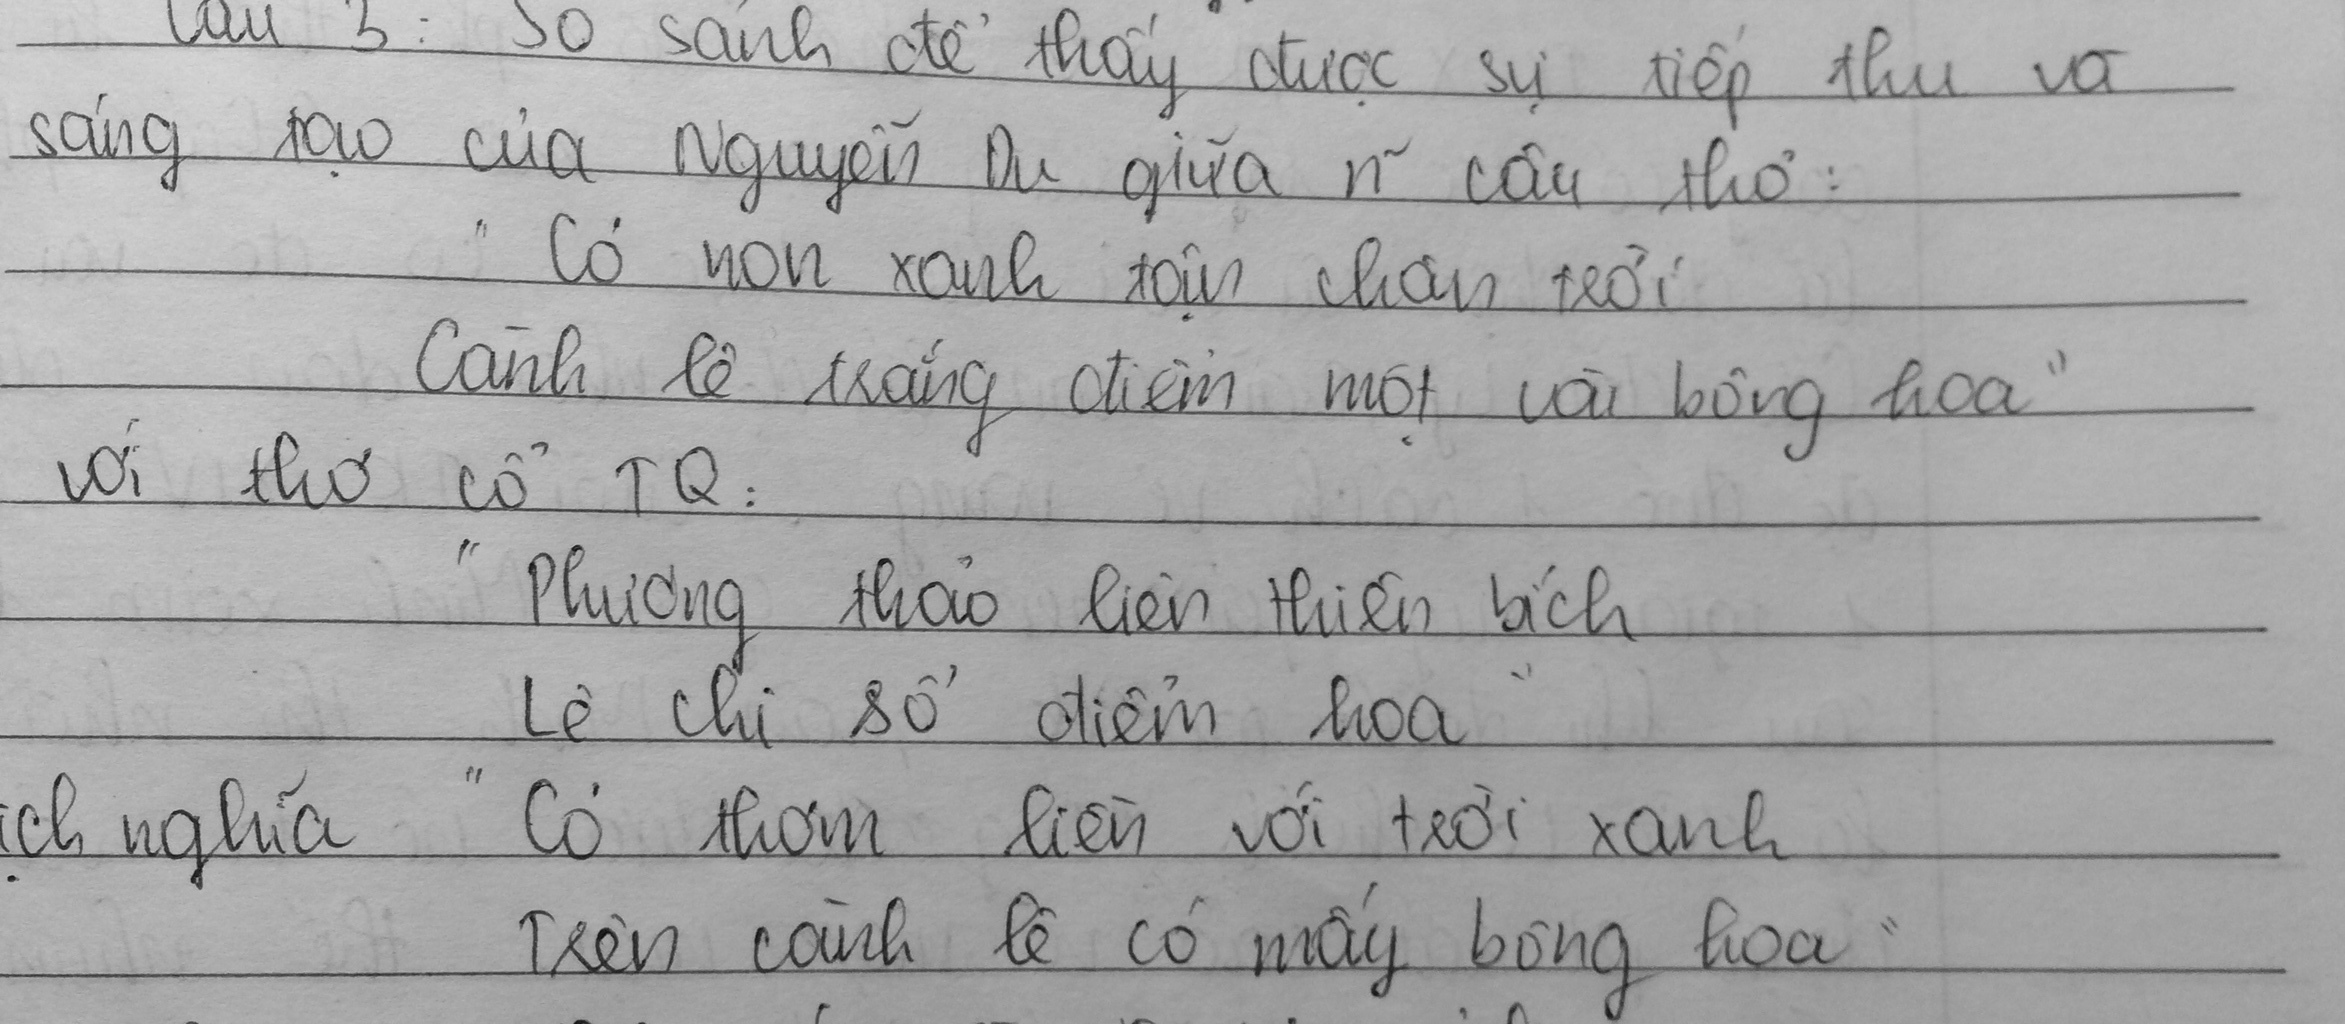 Câu 3: So sánh để thấy được sự tiếp thu và
sáng tạo của Nguyễn Du giữa n~ câu thơ:
" Cỏ non xanh tận chân trời
Cành lê trắng điểm một vài bông hoa"
với thơ cổ TQ:
" Phương thảo liên thiên bích
Lê chi sổ điểm hoa"
ịch nghĩa " Cỏ thơm liền với trời xanh
Trên cành lê có mấy bông hoa"